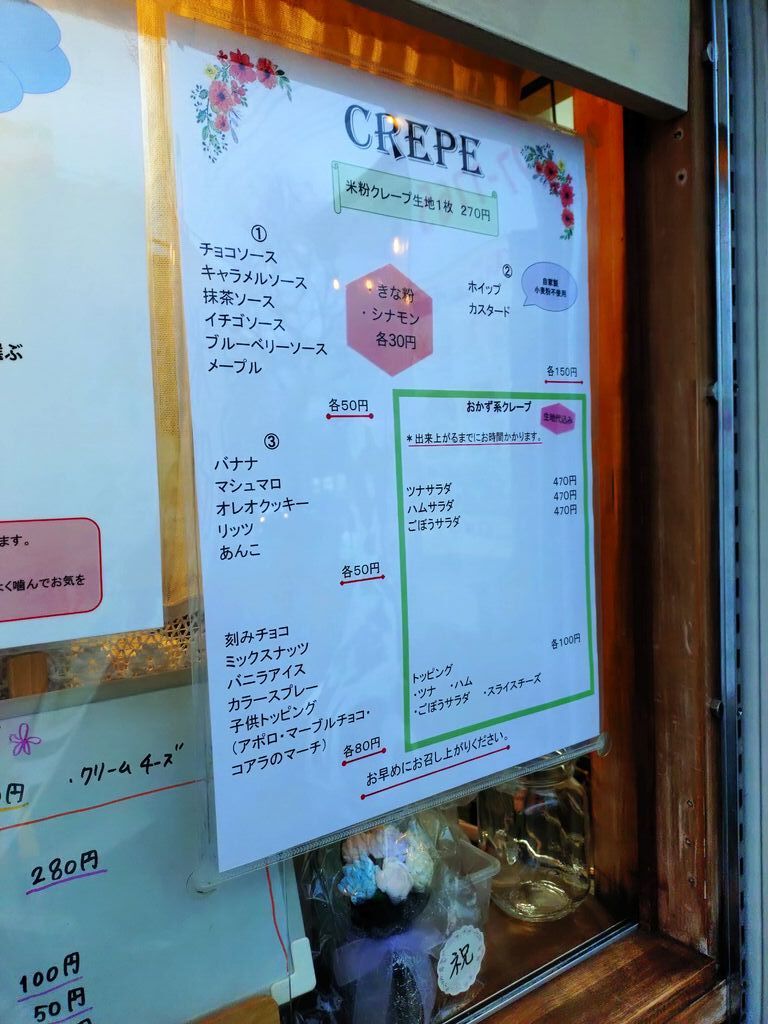 CREPE
米粉クレープ生地1枚 270円
①
チョコソース
キャラメルソース
抹茶ソース
イチゴソース
ブルーベリーソース
メープル
各50円
・きな粉
・シナモン
各30円
②
ホイップ
カスタード
自家製
小麦粉不使用
各150円
③
バナナ
マシュマロ
オレオクッキー
リッツ
あんこ
各50円
刻みチョコ
ミックスナッツ
バニラアイス
カラースプレー
子供トッピング
(アポロ・マーブルチョコ・
コアラのマーチ)
各80円
おかず系クレープ
生地代込み
*出来上がるまでにお時間かかります。
ツナサラダ 470円
ハムサラダ 470円
ごぼうサラダ 470円
各100円
トッピング
・ツナ ・ハム
・ごぼうサラダ ・スライスチーズ
お早めにお召し上がりください。
ぶ
ます。
く噛んでお気を
円
・クリームチーズ
280円
100円
50円
祝